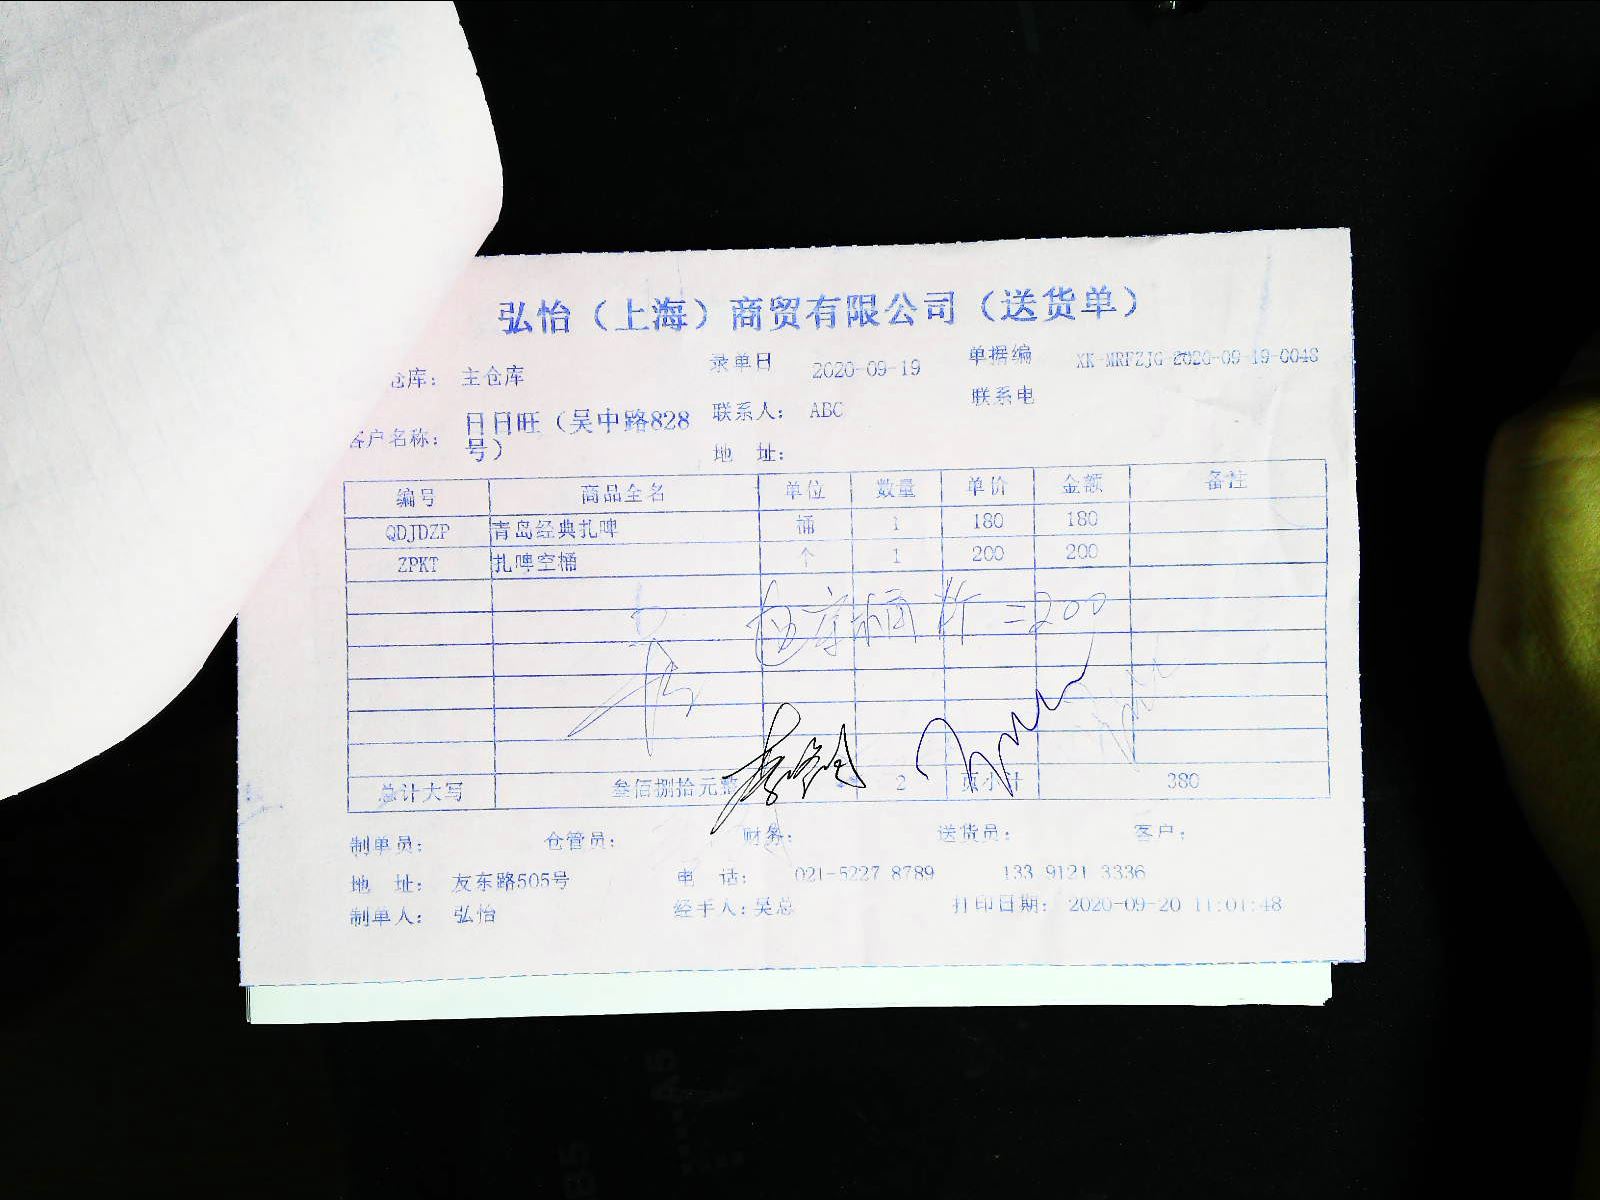 弘怡（上海）商贸有限公司（送货单）
仓库： 主仓库 录单日 2020-09-19 单据编 XK-MRFZJG-2020-09-19-0048
客户名称： 日日旺（吴中路828号） 联系人： ABC 联系电
地 址：
编号 商品全名 单位 数量 单价 金额 备注
QDJDZP 青岛经典扎啤 桶 1 180 180
ZPKT 扎啤空桶 个 1 200 200
=200
总计大写 叁佰捌拾元整 2 页小计 380
制单员： 仓管员： 财务： 送货员： 客户：
地 址： 友东路505号 电 话： 021-5227 8789 133 9121 3336
制单人： 弘怡 经手人：吴总 打印日期： 2020-09-20 11:01:48